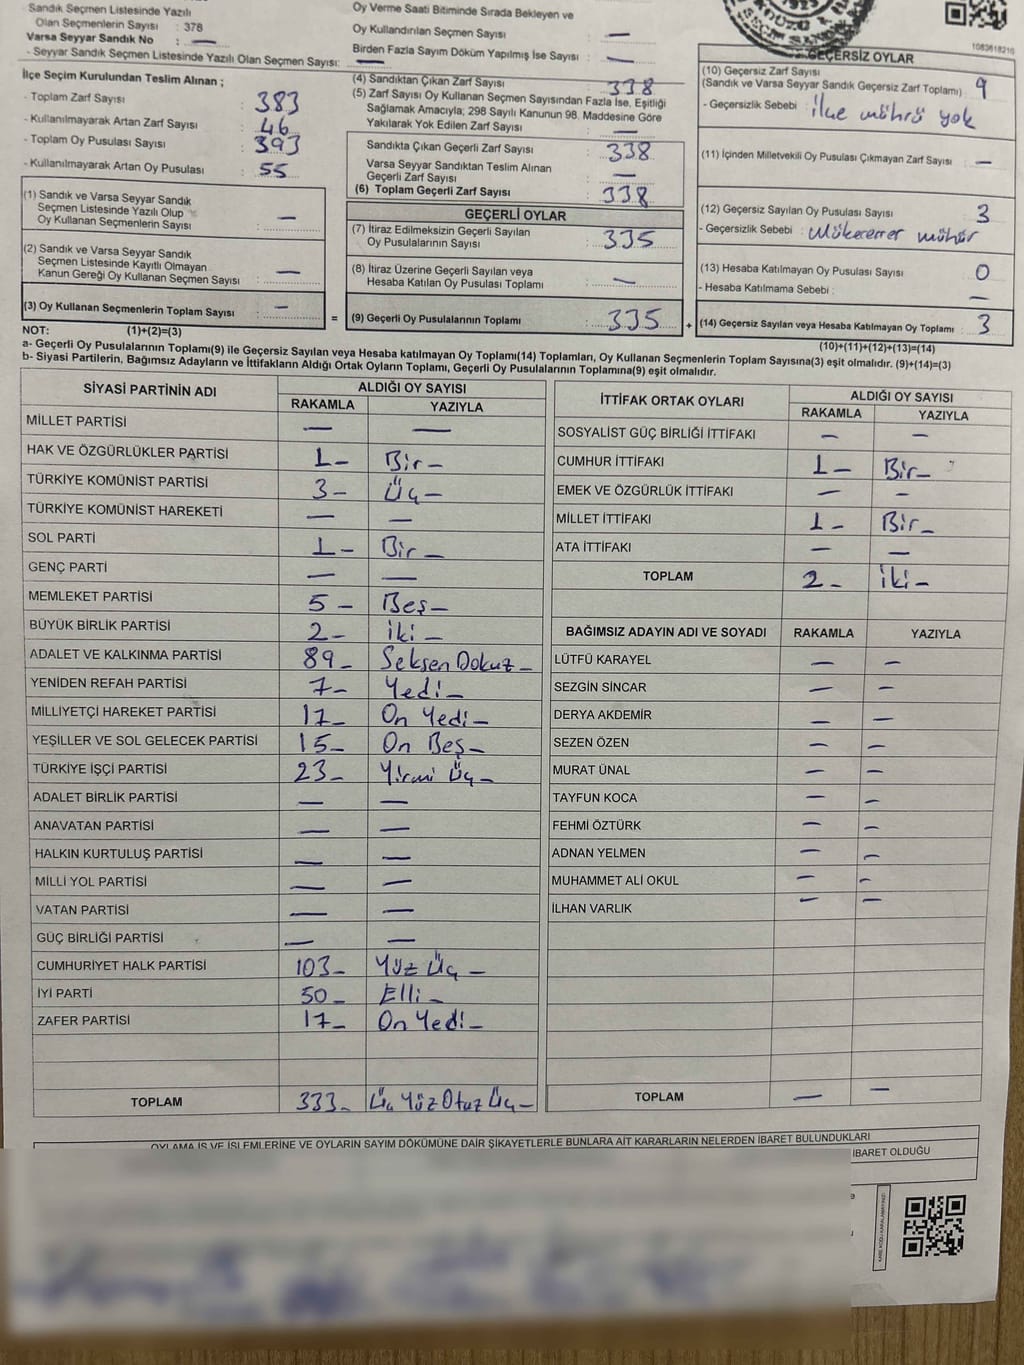 Sandık Seçmen Listesinde Yazılı
Olan Seçmenlerin Sayısı : 378
Varsa Seyyar Sandık No : —
- Seyyar Sandık Seçmen Listesinde Yazılı Olan Seçmen Sayısı: —
İlçe Seçim Kurulundan Teslim Alınan ;
- Toplam Zarf Sayısı : 383
- Kullanılmayarak Artan Zarf Sayısı : 46
- Toplam Oy Pusulası Sayısı : 393
- Kullanılmayarak Artan Oy Pusulası : 55
(1) Sandık ve Varsa Seyyar Sandık
Seçmen Listesinde Yazılı Olup
Oy Kullanan Seçmenlerin Sayısı : —
(2) Sandık ve Varsa Seyyar Sandık
Seçmen Listesinde Kayıtlı Olmayan
Kanun Gereği Oy Kullanan Seçmen Sayısı : —
(3) Oy Kullanan Seçmenlerin Toplam Sayısı : —
Oy Verme Saati Bitiminde Sırada Bekleyen ve
Oy Kullandırılan Seçmen Sayısı : —
Birden Fazla Sayım Döküm Yapılmış İse Sayısı : —
(4) Sandıktan Çıkan Zarf Sayısı : 338
(5) Zarf Sayısı Oy Kullanan Seçmen Sayısından Fazla İse, Eşitliği
Sağlamak Amacıyla, 298 Sayılı Kanunun 98. Maddesine Göre
Yakılarak Yok Edilen Zarf Sayısı : —
Sandıkta Çıkan Geçerli Zarf Sayısı : 338
Varsa Seyyar Sandıktan Teslim Alınan
Geçerli Zarf Sayısı : —
(6) Toplam Geçerli Zarf Sayısı : 338
GEÇERLİ OYLAR
(7) İtiraz Edilmeksizin Geçerli Sayılan
Oy Pusulalarının Sayısı : 335
(8) İtiraz Üzerine Geçerli Sayılan veya
Hesaba Katılan Oy Pusulası Toplamı : —
= (9) Geçerli Oy Pusulalarının Toplamı : 335 +
1083618216
GEÇERSİZ OYLAR
(10) Geçersiz Zarf Sayısı
(Sandık ve Varsa Seyyar Sandık Geçersiz Zarf Toplamı) : 9
- Geçersizlik Sebebi : İlçe mührü yok
(11) İçinden Milletvekili Oy Pusulası Çıkmayan Zarf Sayısı : —
(12) Geçersiz Sayılan Oy Pusulası Sayısı : 3
- Geçersizlik Sebebi : Mükerrer mühür
(13) Hesaba Katılmayan Oy Pusulası Sayısı : 0
- Hesaba Katılmama Sebebi : —
(14) Geçersiz Sayılan veya Hesaba Katılmayan Oy Toplamı : 3
NOT: (1)+(2)=(3)
(10)+(11)+(12)+(13)=(14)
a- Geçerli Oy Pusulalarının Toplamı(9) ile Geçersiz Sayılan veya Hesaba katılmayan Oy Toplamı(14) Toplamları, Oy Kullanan Seçmenlerin Toplam Sayısına(3) eşit olmalıdır. (9)+(14)=(3)
b- Siyasi Partilerin, Bağımsız Adayların ve İttifakların Aldığı Ortak Oyların Toplamı, Geçerli Oy Pusulalarının Toplamına(9) eşit olmalıdır.
SİYASİ PARTİNİN ADI ALDIĞI OY SAYISI
RAKAMLA YAZIYLA
MİLLET PARTİSİ — —
HAK VE ÖZGÜRLÜKLER PARTİSİ 1— Bir—
TÜRKİYE KOMÜNİST PARTİSİ 3— Üç—
TÜRKİYE KOMÜNİST HAREKETİ — —
SOL PARTİ 1— Bir—
GENÇ PARTİ — —
MEMLEKET PARTİSİ 5— Beş—
BÜYÜK BİRLİK PARTİSİ 2— İki—
ADALET VE KALKINMA PARTİSİ 89— Seksen Dokuz—
YENİDEN REFAH PARTİSİ 7— Yedi—
MİLLİYETÇİ HAREKET PARTİSİ 17— On Yedi—
YEŞİLLER VE SOL GELECEK PARTİSİ 15— On Beş—
TÜRKİYE İŞÇİ PARTİSİ 23— Yirmi Üç—
ADALET BİRLİK PARTİSİ — —
ANAVATAN PARTİSİ — —
HALKIN KURTULUŞ PARTİSİ — —
MİLLİ YOL PARTİSİ — —
VATAN PARTİSİ — —
GÜÇ BİRLİĞİ PARTİSİ — —
CUMHURİYET HALK PARTİSİ 103— Yüz Üç—
İYİ PARTİ 50— Elli—
ZAFER PARTİSİ 17— On Yedi—
TOPLAM 333— Üç Yüz Otuz Üç—
İTTİFAK ORTAK OYLARI ALDIĞI OY SAYISI
RAKAMLA YAZIYLA
SOSYALİST GÜÇ BİRLİĞİ İTTİFAKI — —
CUMHUR İTTİFAKI 1— Bir—
EMEK VE ÖZGÜRLÜK İTTİFAKI — —
MİLLET İTTİFAKI 1— Bir—
ATA İTTİFAKI — —
TOPLAM 2— İki—
BAĞIMSIZ ADAYIN ADI VE SOYADI RAKAMLA YAZIYLA
LÜTFÜ KARAYEL — —
SEZGİN SİNCAR — —
DERYA AKDEMİR — —
SEZEN ÖZEN — —
MURAT ÜNAL — —
TAYFUN KOCA — —
FEHMİ ÖZTÜRK — —
ADNAN YELMEN — —
MUHAMMET ALİ OKUL — —
İLHAN VARLIK — —
TOPLAM — —
OYLAMA İŞ VE İŞLEMLERİNE VE OYLARIN SAYIM DÖKÜMÜNE DAİR ŞİKAYETLERLE BUNLARA AİT KARARLARIN NELERDEN İBARET BULUNDUKLARI
İBARET OLDUĞU